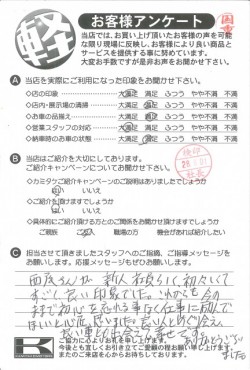 軽
お客様アンケート
当店では、お買い上げ頂いたお客様の声を可能
な限り現場に反映し、お客様により良い商品と
サービスを提供する事に努めています。
大変お手数ですが是非お声をお聞かせ下さい。
A 当店を実際にご利用になった印象をお聞かせ下さい。
◇店の印象 大満足 満足 ふつう やや不満 不満
◇店内・展示場の清掃 大満足 満足 ふつう やや不満 不満
◇お車の品揃え 大満足 満足 ふつう やや不満 不満
◇営業スタッフの対応 大満足 満足 ふつう やや不満 不満
◇納車時のお車の状態 大満足 満足 ふつう やや不満 不満
B 当店はご紹介を大切にしております。
ご紹介キャンペーンについてお聞かせ下さい。
◇カミタケご紹介キャンペーンのご説明はありましたでしょうか
はい いいえ
◇ご紹介を頂けますでしょうか
はい いいえ
◇具体的にご紹介頂ける方とのご関係をお聞かせ頂けますでしょうか
ご親戚 ご友人 職場の方 機会があれば紹介したい
C 担当させて頂きましたスタッフへのご指摘、ご指導メッセージを
お願いします。応援メッセージもぜひお願いします。
すごく良い印象でした。これからも今の
良い車との出会えて幸せです。
ありがとうござい
ました
ご協力に心よりお礼を申し上げます。
今後とも宜しくお引き立てご愛顧の程お願い申し上げます。
またのご来店を心からお待ちしております。